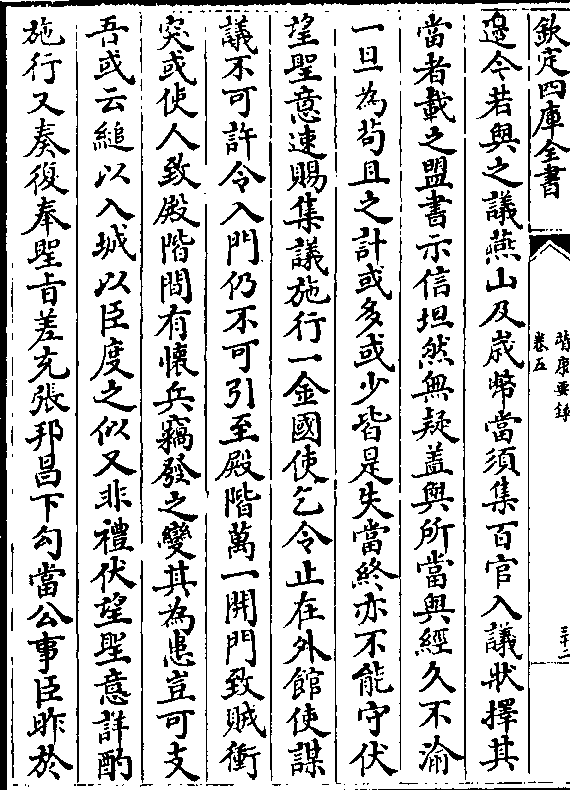 欽定四庫全書
靖康要錄
卷五
三十二
邉今若與之議燕山及歳幣當須集百官入議狀擇其
當者載之盟書示信坦然無疑葢與所當與經久不渝
一旦為茍且之計或多或少皆是失當終亦不能守伏
望聖意速賜集議施行一金國使乞令止在外館使謀
議不可許令入門仍不可引至殿階萬一開門致賊衝
突或使人致殿階間有懷兵竊發之變其為患豈可支
吾或云縋以入城以臣度之似又非禮伏望聖意詳酌
施行又奏復奉聖旨差充張邦昌下勾當公事臣昨於